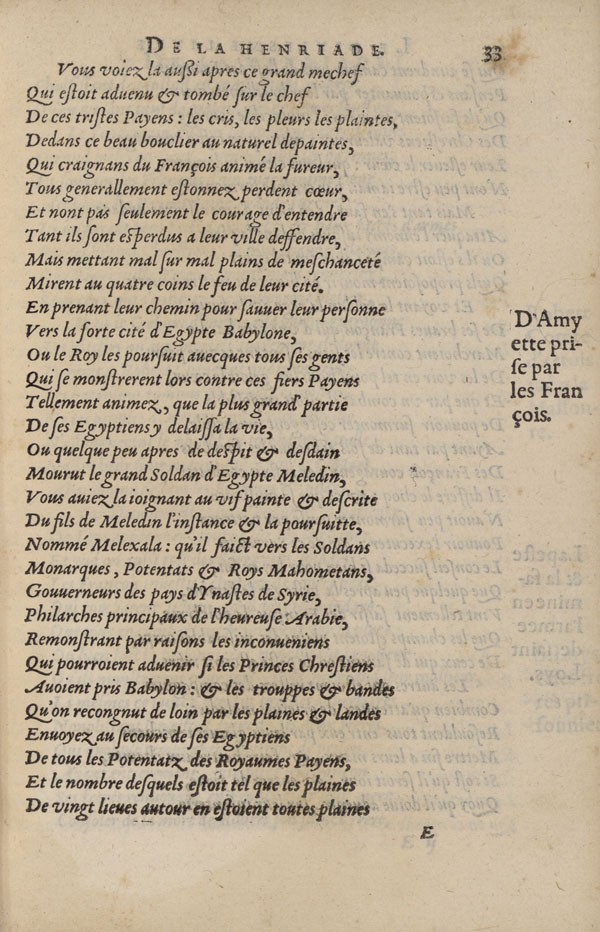 DE LA HENRIADE. 33
Vous voiez la außi apres ce grand mechef
Qui eſtoit aduenu & tombé ſur le chef
De ces triſtes Payens : les cris, les pleurs les plaintes,
Dedans ce beau bouclier au naturel depaintes,
Qui craignans du François animé la fureur,
Tous generallement eſtonnez perdent cœur,
Et nont pas ſeulement le courage d'entendre
Tant ils ſont eſperdus a leur ville deffendre,
Mais mettant mal ſur mal plains de meſchanceté
Mirent au quatre coins le feu de leur cité.
En prenant leur chemin pour ſauuer leur perſonne
Vers la forte cité d'Egypte Babylone,
Ou le Roy les pourſuit auecques tous ſes gents
Qui ſe monſtrerent lors contre ces fiers Payens
Tellement animez, que la plus grand' partie
De ſes Egyptiens y delaiſſa la vie,
Ou quelque peu apres de deſpit & deſdain
Mourut le grand Soldan d'Egypte Meledin,
Vous auiez la ioignant au vif painte & deſcrite
Du fils de Meledin l'inſtance & la pourſuitte,
Nommé Melexala : qu'il faict vers les Soldans
Monarques, Potentats & Roys Mahometans,
Gouuerneurs des pays d'Ynaſtes de Syrie,
Philarches principaux de l'heureuſe Arabie,
Remonſtrant par raiſons les inconueniens
Qui pourroient aduenir ſi les Princes Chreſtiens
Auoient pris Babylon : & les trouppes & bandes
Qu'on recongnut de loin par les plaines & landes
Enuoyez au ſecours de ſes Egyptiens
De tous les Potentatz des Royaumes Payens,
Et le nombre deſquels eſtoit tel que les plaines
De vingt lieues autour en eſtoient toutes plaines
E
D'Amy
ette pri-
ſe par
les Fran
çois.